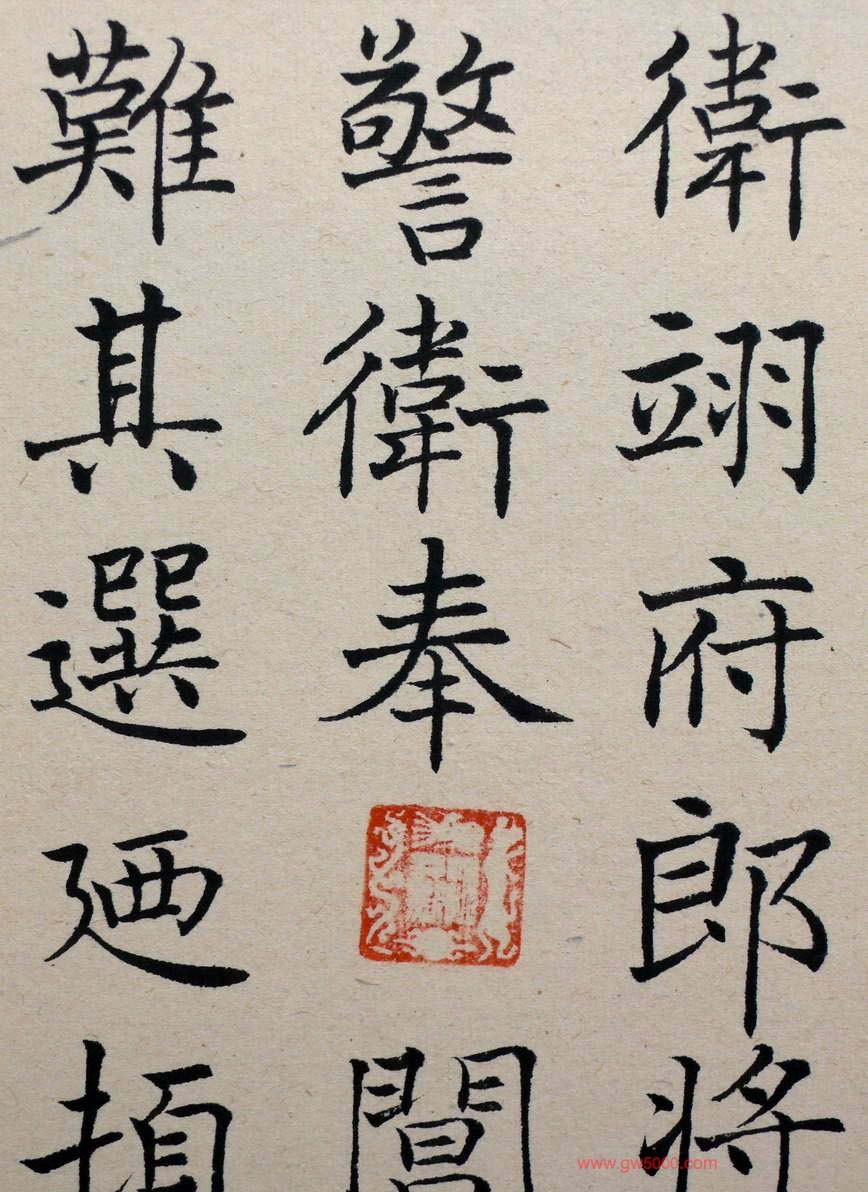 衛翊府郎將
警衛奉閶
難其選廼頓
www.gw5000.com